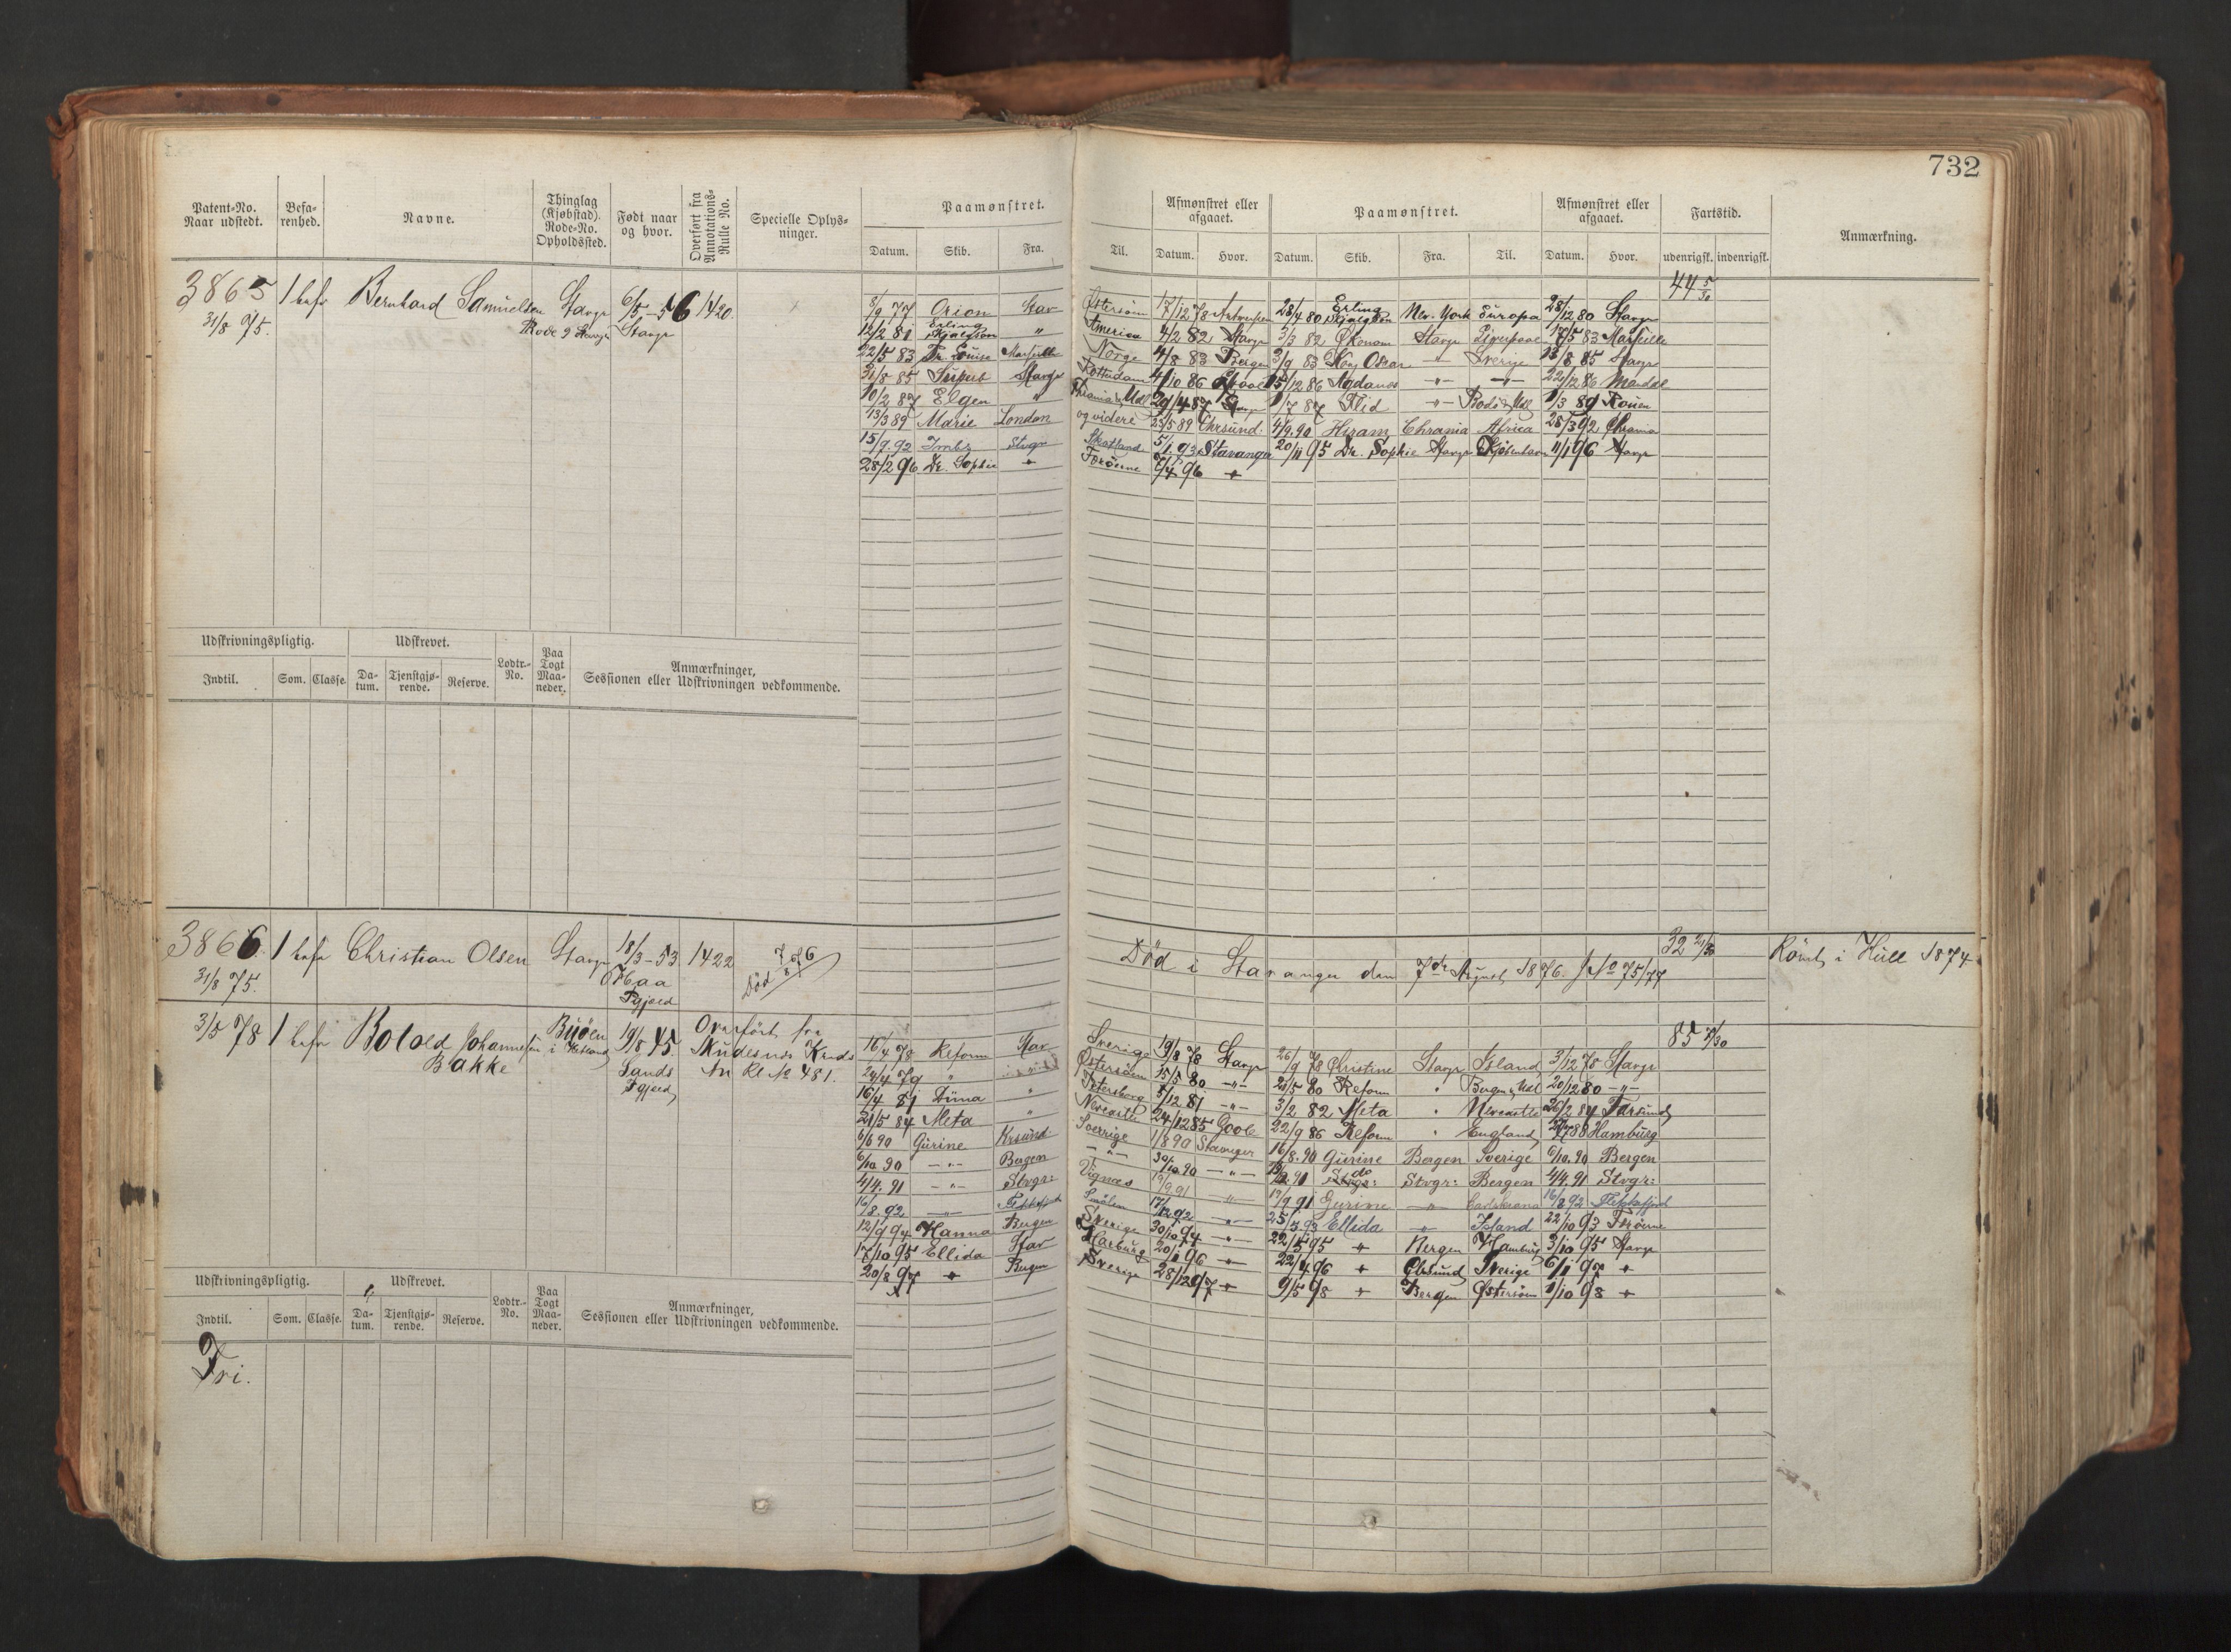 732
Patent-No. Naar udstedt.
Befa-renhed.
Navne.
Thinglag (Kjøbstad). Rode-No. Opholdssted.
Født naar og hvor.
Overført fra Annotations-Rulle No.
Specielle Oplys-ninger.
Paamønstret.
Datum. Skib. Fra. Til.
Afmønstret eller afgaaet.
Datum. Hvor.
Paamønstret.
Datum. Skib. Fra. Til.
Afmønstret eller afgaaet.
Datum. Hvor.
Fartstid.
udenrigsk. indenrigsk.
Anmærkning.
3865 1 bef Bernhard Samuelsen Stavgr 6/5-56 1420
31/8 75. Rode 9 Stavgr Stavgr
44 5/30
8/9 77 Orion Stav Østersøen 17/12 78 Antwerpen 28/4 80 Erling Skjalgson New. York Europa 28/12 80 Stavgr
12/2 81 Erling Skjalgson " America 4/2 82 Stavgr 3/3 82 Økonom Stavgr Liverpool 18/5 83 Marseille
22/5 83 Pr. Louise Marseille Norge 4/8 83 Bergen 3/9 83 Kong Oscar -"- Sverige 13/8 85 Stavgr
31/8 85 Stavgr Rotterdam 4/10 86 15/12 86 -"- -"- 22/12 86 Mandal
10/2 87 Elgen " 29/4 87 Stavgr 1/7 87 Flid -"- Bodö & Udl 1/3 89 Rouen
13/3 89 Marie London og videre 25/5 89 Chrsund. 4/9.90 Hiram Chrania Africa 28/3 92 Chrania
15/9.92 Stvgr Skotland 5/1.93 Stavanger 20/11 95 Dr. Sophie Stavgr Kjøbenhavn 11/1 96 Stavgr
28/2 96 Dr. Sophie " Færøerne 7/4 96 "
Udskrivningspligtig. Udskrevet. Lodtr.-No. Paa Togt Maa-neder. Anmærkninger, Sessionen eller Udskrivningen vedkommende.
Indtil. Som. Classe. Da-tum. Tjenstgjø-rende. Reserve.
3866 1 befr Christian Olsen Stavgr 18/3-53 1422 Död 7/8 76
31/8 75. Haa Pgjæld
Död i Stavanger den 7de August 1876. JNo 75/77
32 21/30
Römt i Hull 1874
3/5 78 1 befr Botolf Johannesen Bakke Buöen i Hetland 19/8 45. Sands Pgjæld Overfört fra Skudesnes Krds An Rl No 481.
85 /30
16/4 78 Reform Stav Sverige 19/8 78 Stavgr 26/9 78 Christine Stavgr Island 3/12 78 Stavgr
24/4 79 " Østersøen 15/5 80 -"- 21/5 80 Reform " Bergen & Udl 20/12 80 -"-
16/4 81 Dúna " Petersborg 8/12 81 -"- 3/2 82 Meta " Newcastle 26/2 84 Farsund
21/5 84 Meta " Newcastle 24/12 85 Goole 22/9 86 Reform " England /7 88 Hamburg
6/6 90 Gurine Krsund Sverrige 1/8 90 Stavanger 16/8.90 Gurine Bergen Sverige 6/10.90 Bergen
6/10.90 -"- Bergen -"- 30/10.90 -"- do Stvgr: Bergen 4/4.91 Stvgr:
4/4.91 -"- Stvgr: Vignæs 19/9 91 -"- 19/9 91 Gurine -"- Carlskrona 16/8.92 Flekkefjord
16/8.92 -"- Flekkefjord Smölen 17/12 92 -"- 25/3 93 Ellida -"- Island 22/10 93 Færöerne
12/9 94 Hanna Bergen Sverige 30/10 94 -"- 22/5 95 " Bergen Hamburg 3/10 95 Stavgr
17/10 95 Ellida Stav Harburg 20/1 96 " 22/4 96 " Sverige 6/1 97 "
20/8 97 " Bergen Sverige 28/12 97 " 9/5 98 " Bergen Østersøen 1/10 98 "
Udskrivningspligtig. Udskrevet. Lodtr.-No. Paa Togt Maa-neder. Anmærkninger, Sessionen eller Udskrivningen vedkommende.
Indtil. Som. Classe. Da-tum. Tjenstgjø-rende. Reserve.
Fri.